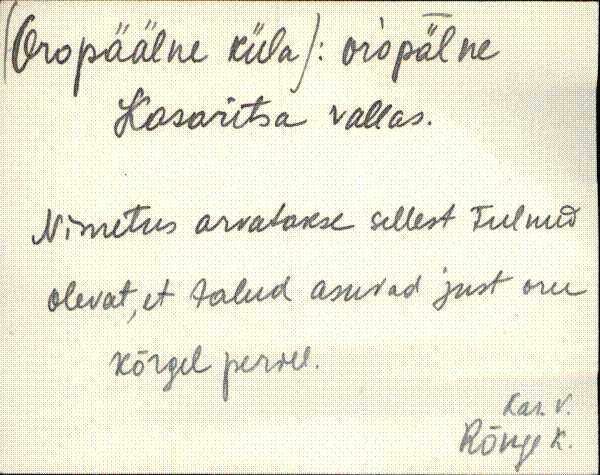 (Oropäälne küla): oropälne
Kasaritsa vallas.
Nimetus arvatakse sellest tulnud
olevat, et talud asuvad just oru
kõrgel pervel.
Kas. V.
Rõuge K.